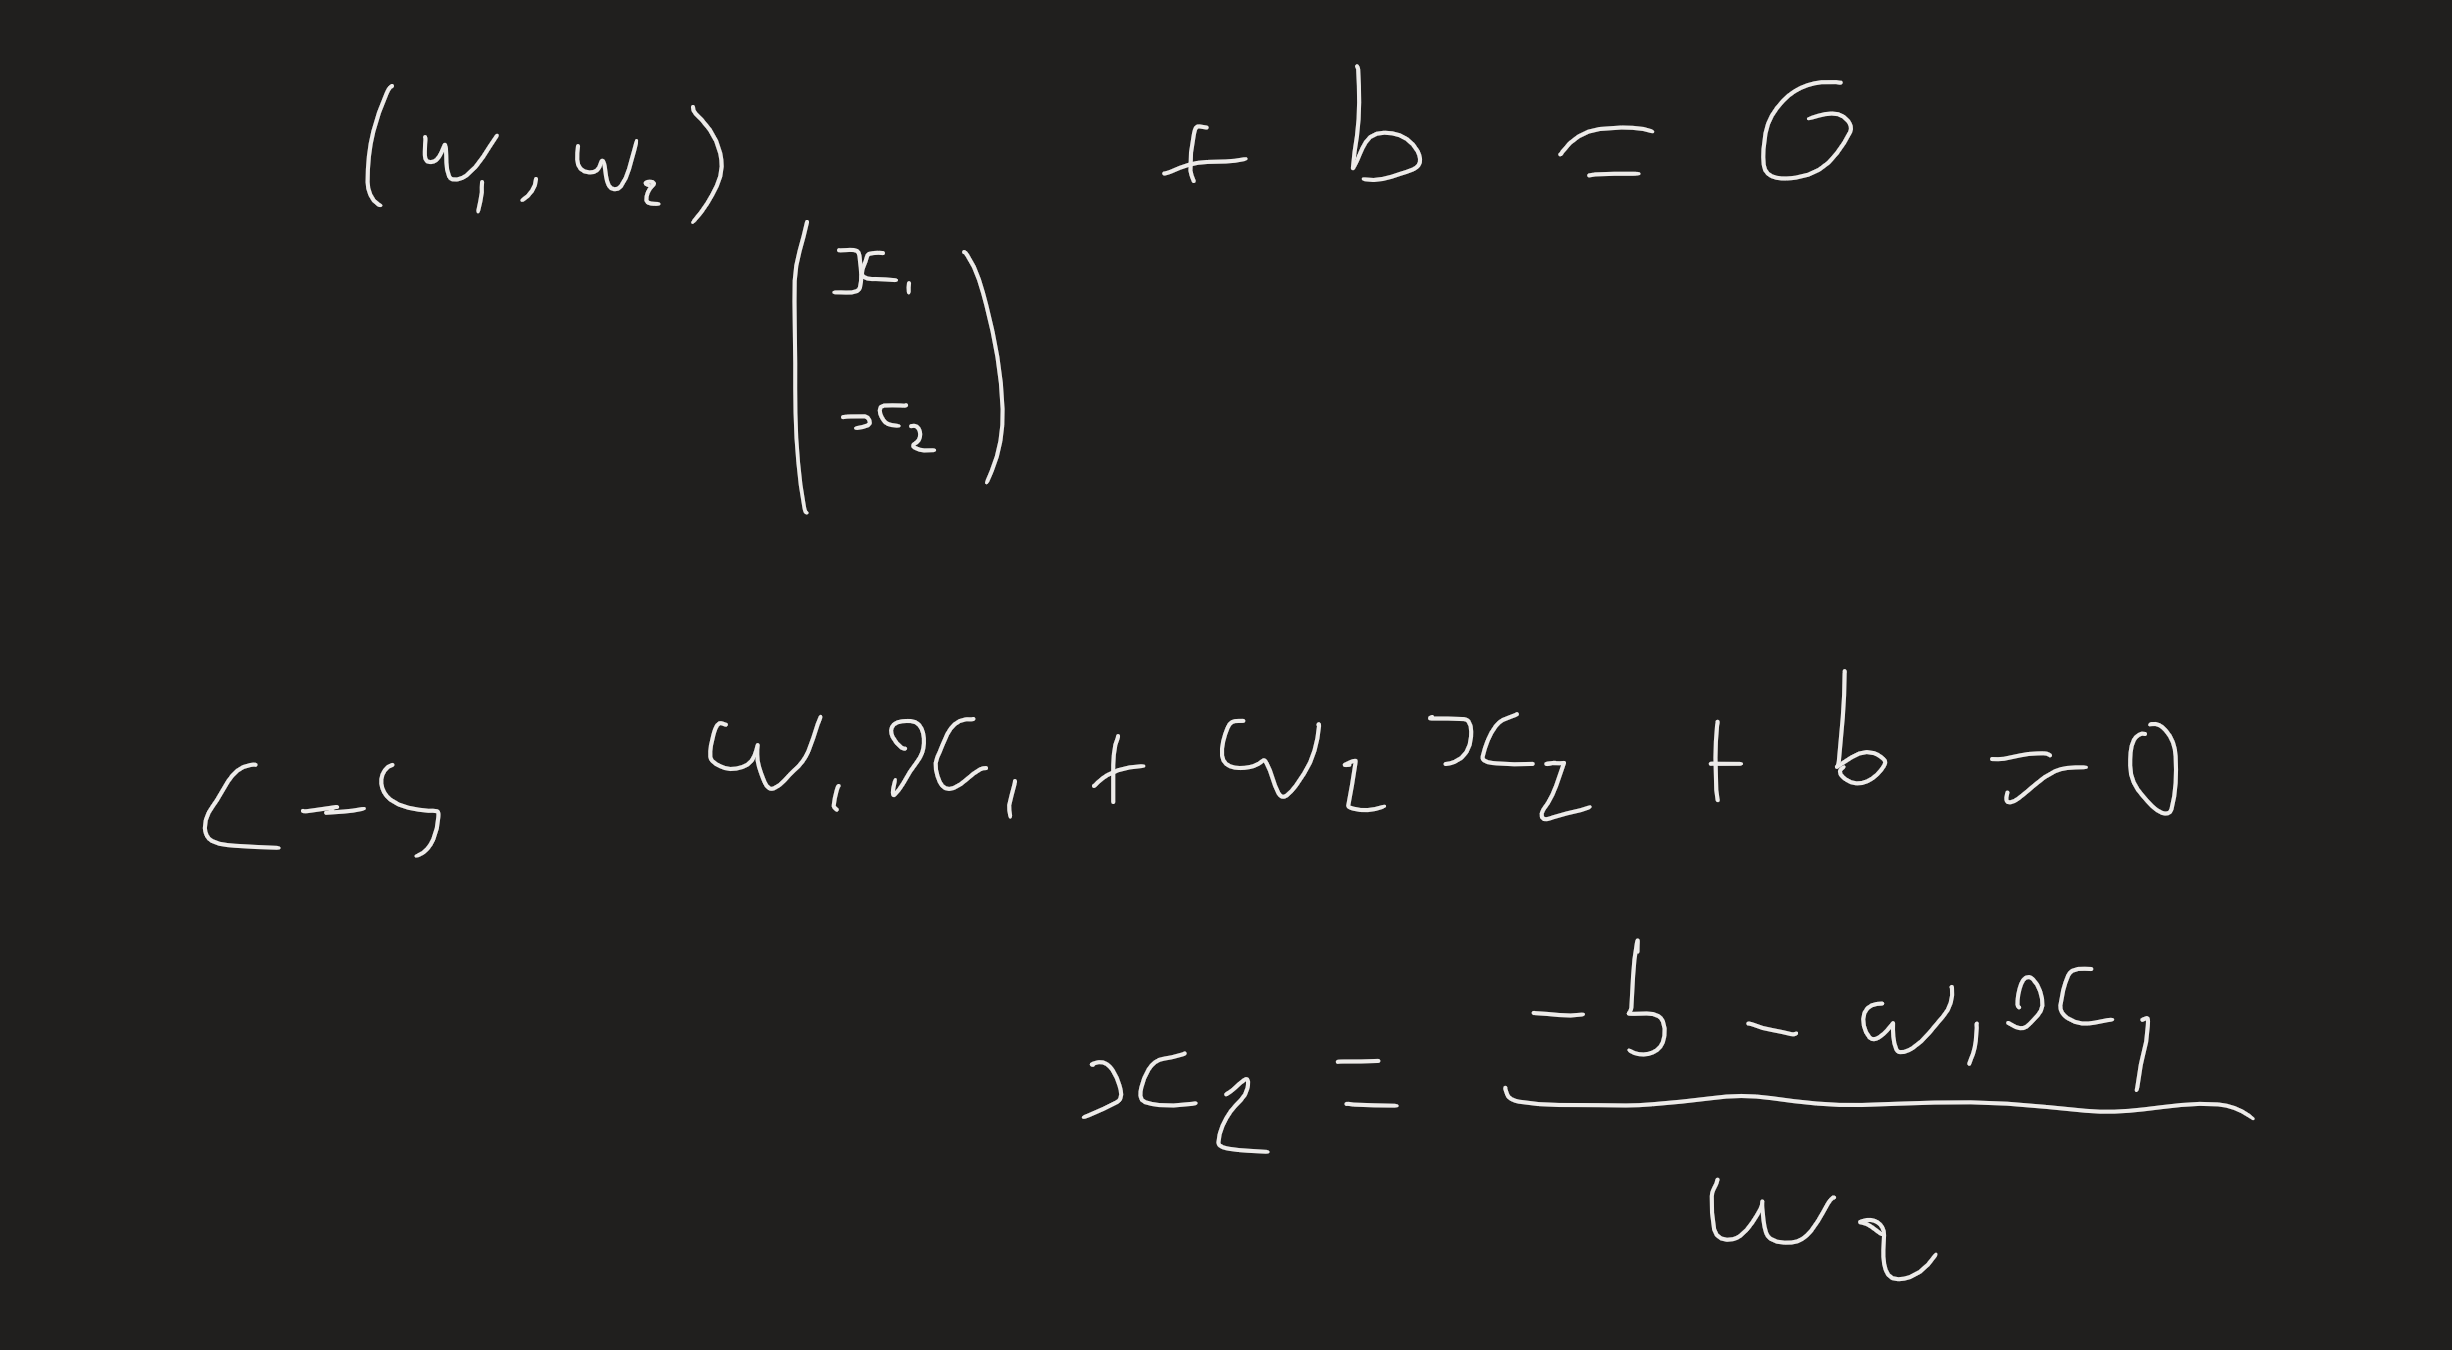 (w₁, w₂) (x₁ x₂) + b = 0
<-> w₁x₁ + w₂x₂ + b = 0
x₂ = (-b - w₁x₁) / w₂